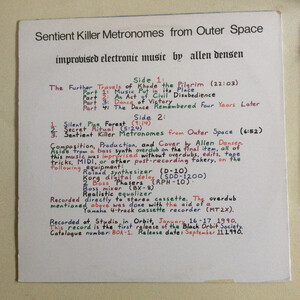 Sentient Killer Metronomes from Outer Space
improvised electronic music by allen densen
Side 1:
The Further Travels of Khode the Pilgrim (22:03)
Part 1: Music Put in Its Place
Part 2: An Act of Civil Disobedience
Part 3: Dance of Victory
Part 4: The Dance Remembered Four Years Later
Side 2:
1. Silent Pine Forest (9:14)
2. Secret Ritual (5:24)
3. Sentient Killer Metronomes from Outer Space (6:52)
Composition, Production, and Cover by Allen Densen
Aside from a bass synth overdub on the final item, all of
this music was improvised without overdubs, edits, tape
tricks, MIDI, or other post-recording artistry, on the
following equipment:
Roland synthesizer (D-20)
Korg digital delay (SDD-1200)
2 Boss Phasers (RPH-10)
Boss mixer (BX-8)
Realistic equalizer
Recorded directly to stereo cassette. The overdub
mentioned above was done with the aid of a
Yamaha 4-track cassette recorder (MT2X).
Recorded at Studio in Orbit, January 16-17 1990.
This record is the first release of the Black Orbit Society
Catalogue number BOS-1. Release date: September 11 1990.